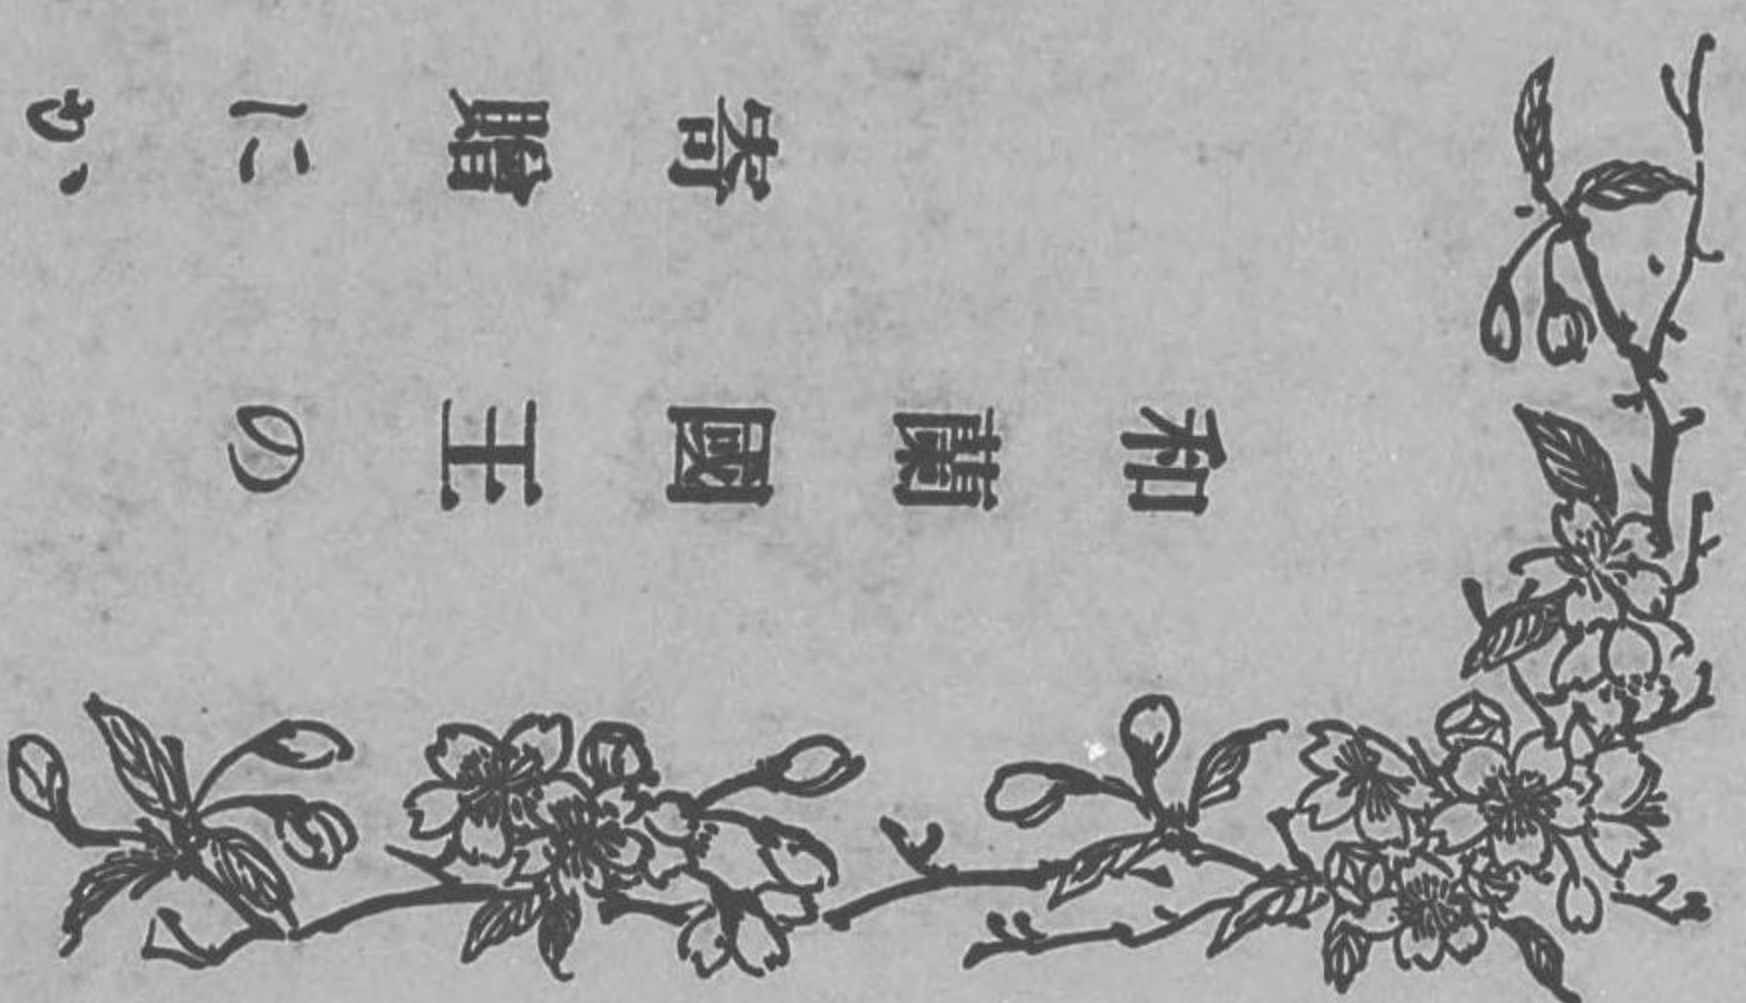 和蘭國王の
寄贈にか